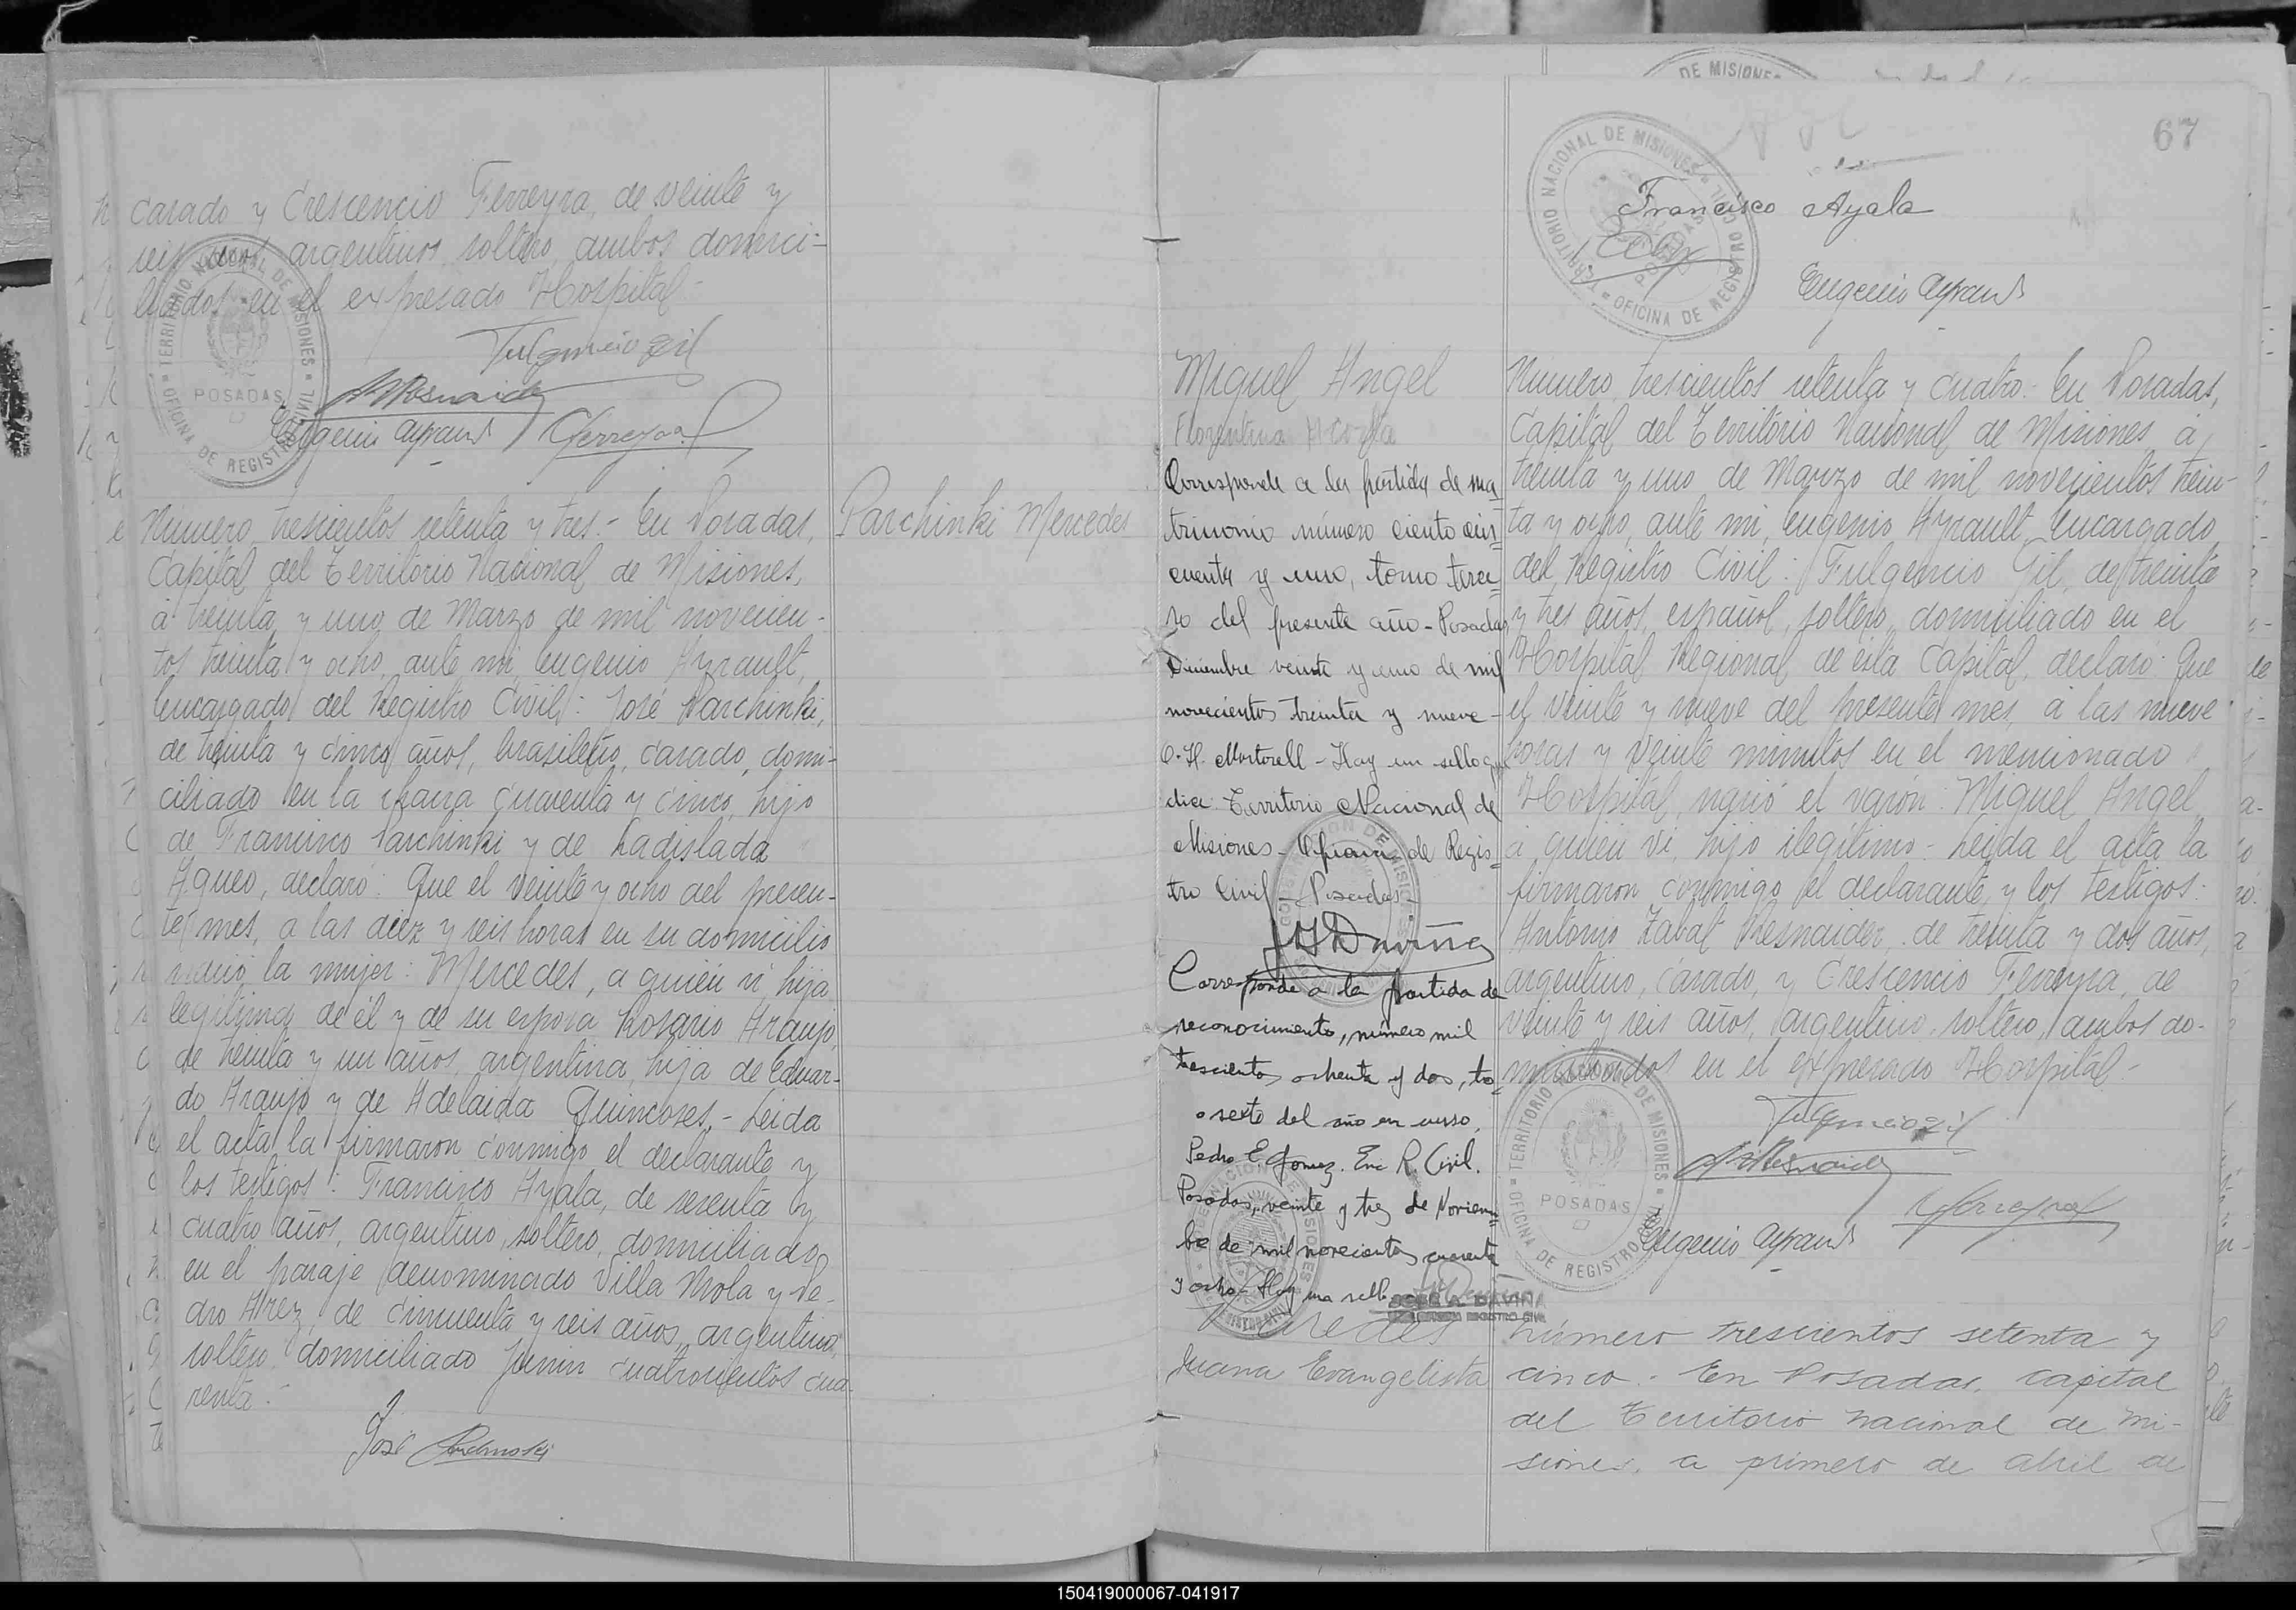 casado y Crescencio Ferreyra, de veinte y
seis años, argentinos, soltero, ambos domici-
liados en el expresado Hospital-
Fulgencio Gil
Eugenio Ayrault CFerreyra
TERRITORIO NACIONAL DE MISIONES
OFICINA DE REGISTRO CIVIL
POSADAS
Número trescientos setenta y tres.- En Posadas,
Capital del Territorio Nacional de Misiones,
a treinta y uno de Marzo de mil novecien-
tos treinta y ocho, ante mi, Eugenio Ayrault,
Encargado del Registro Civil: José Parchinki,
de treinta y cinco años, brasileño, casado, domi-
ciliado en la chacra cuarenta y cinco, hijo
de Francisco Parchinki y de Ladislada
Aqueo, declaró: Que el veinte y ocho del presen-
te mes, a las diez y seis horas en su domicilio
nació la mujer: Mercedes, a quien vi, hija
legítima de él y de su esposa Rosario Araujo,
de treinta y un años, argentina, hija de Eduar-
do Araujo y de Adelaida Quincoses.- Leida
el acta la firmaron conmigo el declarante y
los testigos: Francisco Ayala, de sesenta y
cuatro años, argentino, soltero, domiciliado
en el paraje denominado Villa Mola y Pe-
dro Arez de cincuenta y seis años, argentino,
soltero, domiciliado Junin cuatrocientos cua-
renta.-
José Parchinski
Parchinki Mercedes
67
DE MISIONES
TERRITORIO NACIONAL DE MISIONES
OFICINA DE REGISTRO CIVIL
POSADAS
Francisco Ayala
Eugenio Ayrault
Miguel Angel
Florentina Acosta
Corresponde a la partida de ma-
trimonio número ciento cin-
cuenta y uno, tomo terce-
ro del presente año - Posadas,
Diciembre veinte y uno de mil
novecientos treinta y nueve-
O. H. Martorell - Hay un sello que
dice: Territorio Nacional de
Misiones - Oficina de Regis-
tro Civil - Posadas-
Corresponde a la partida de
reconocimiento, número mil
trescientos ochenta y dos, to-
o sexto del año en curso.
Pedro E. Gomez. Enc R. Civil.
Posadas, veinte y tres de Noviem-
bre de mil novecientos cuarenta
y ocho. Hay un sello
JOSE A. DAVIÑA
REGISTRO CIVIL
Número trescientos setenta y cuatro.- En Posadas,
Capital del Territorio Nacional de Misiones, a
treinta y uno de Marzo de mil novecientos trein-
ta y ocho, ante mi, Eugenio Ayrault, Encargado
del Registro Civil: Fulgencio Gil, de treinta
y tres años, español, soltero, domiciliado en el
Hospital Regional de esta Capital, declaró: Que
el veinte y nueve del presente mes, a las nueve
horas y veinte minutos en el mencionado
Hospital, nació el varón: Miguel Angel,
a quien vi, hijo ilegítimo.- Leida el acta la
firmaron conmigo el declarante y los testigos:
Antonio Zabat Resnaider, de treinta y dos años,
argentino, casado, y Crescencio Ferreyra, de
veinte y seis años, argentino, soltero, ambos do-
miciliados en el expresado Hospital-
Fulgencio Gil
CFerreyra
Eugenio Ayrault
TERRITORIO NACIONAL DE MISIONES
OFICINA DE REGISTRO CIVIL
POSADAS
Juana Evangelista
número trescientos setenta y
cinco.- En Posadas, capital
del Territorio nacional de Mi-
siones, a primero de abril de
150419000067-041917